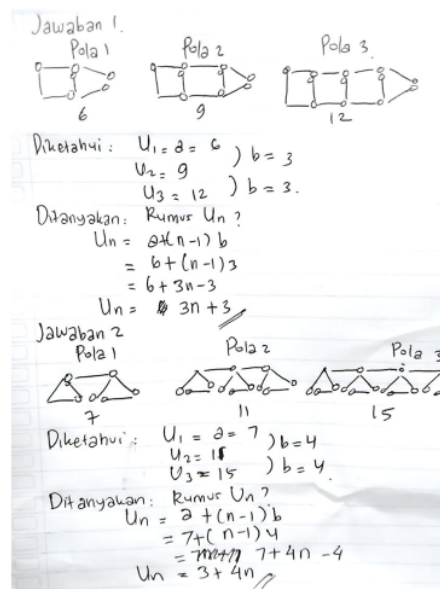 Jawaban 1.
Pola 1 Pola 2 Pola 3.
6 9 12
Diketahui : U1 = a = 6
U2 = 9 ) b = 3
U3 = 12 ) b = 3.
Ditanyakan : Rumus Un ?
Un = a+(n-1) b
= 6 + (n-1) 3
= 6 + 3n - 3
Un = 3n + 3
Jawaban 2
Pola 1 Pola 2 Pola 3
7 11 15
Diketahui : U1 = a = 7
U2 = 11 ) b = 4
U3 = 15 ) b = 4.
Ditanyakan : Rumus Un ?
Un = a + (n-1) b
= 7 + (n-1) 4
= 7 + 4n - 4
Un = 3 + 4n